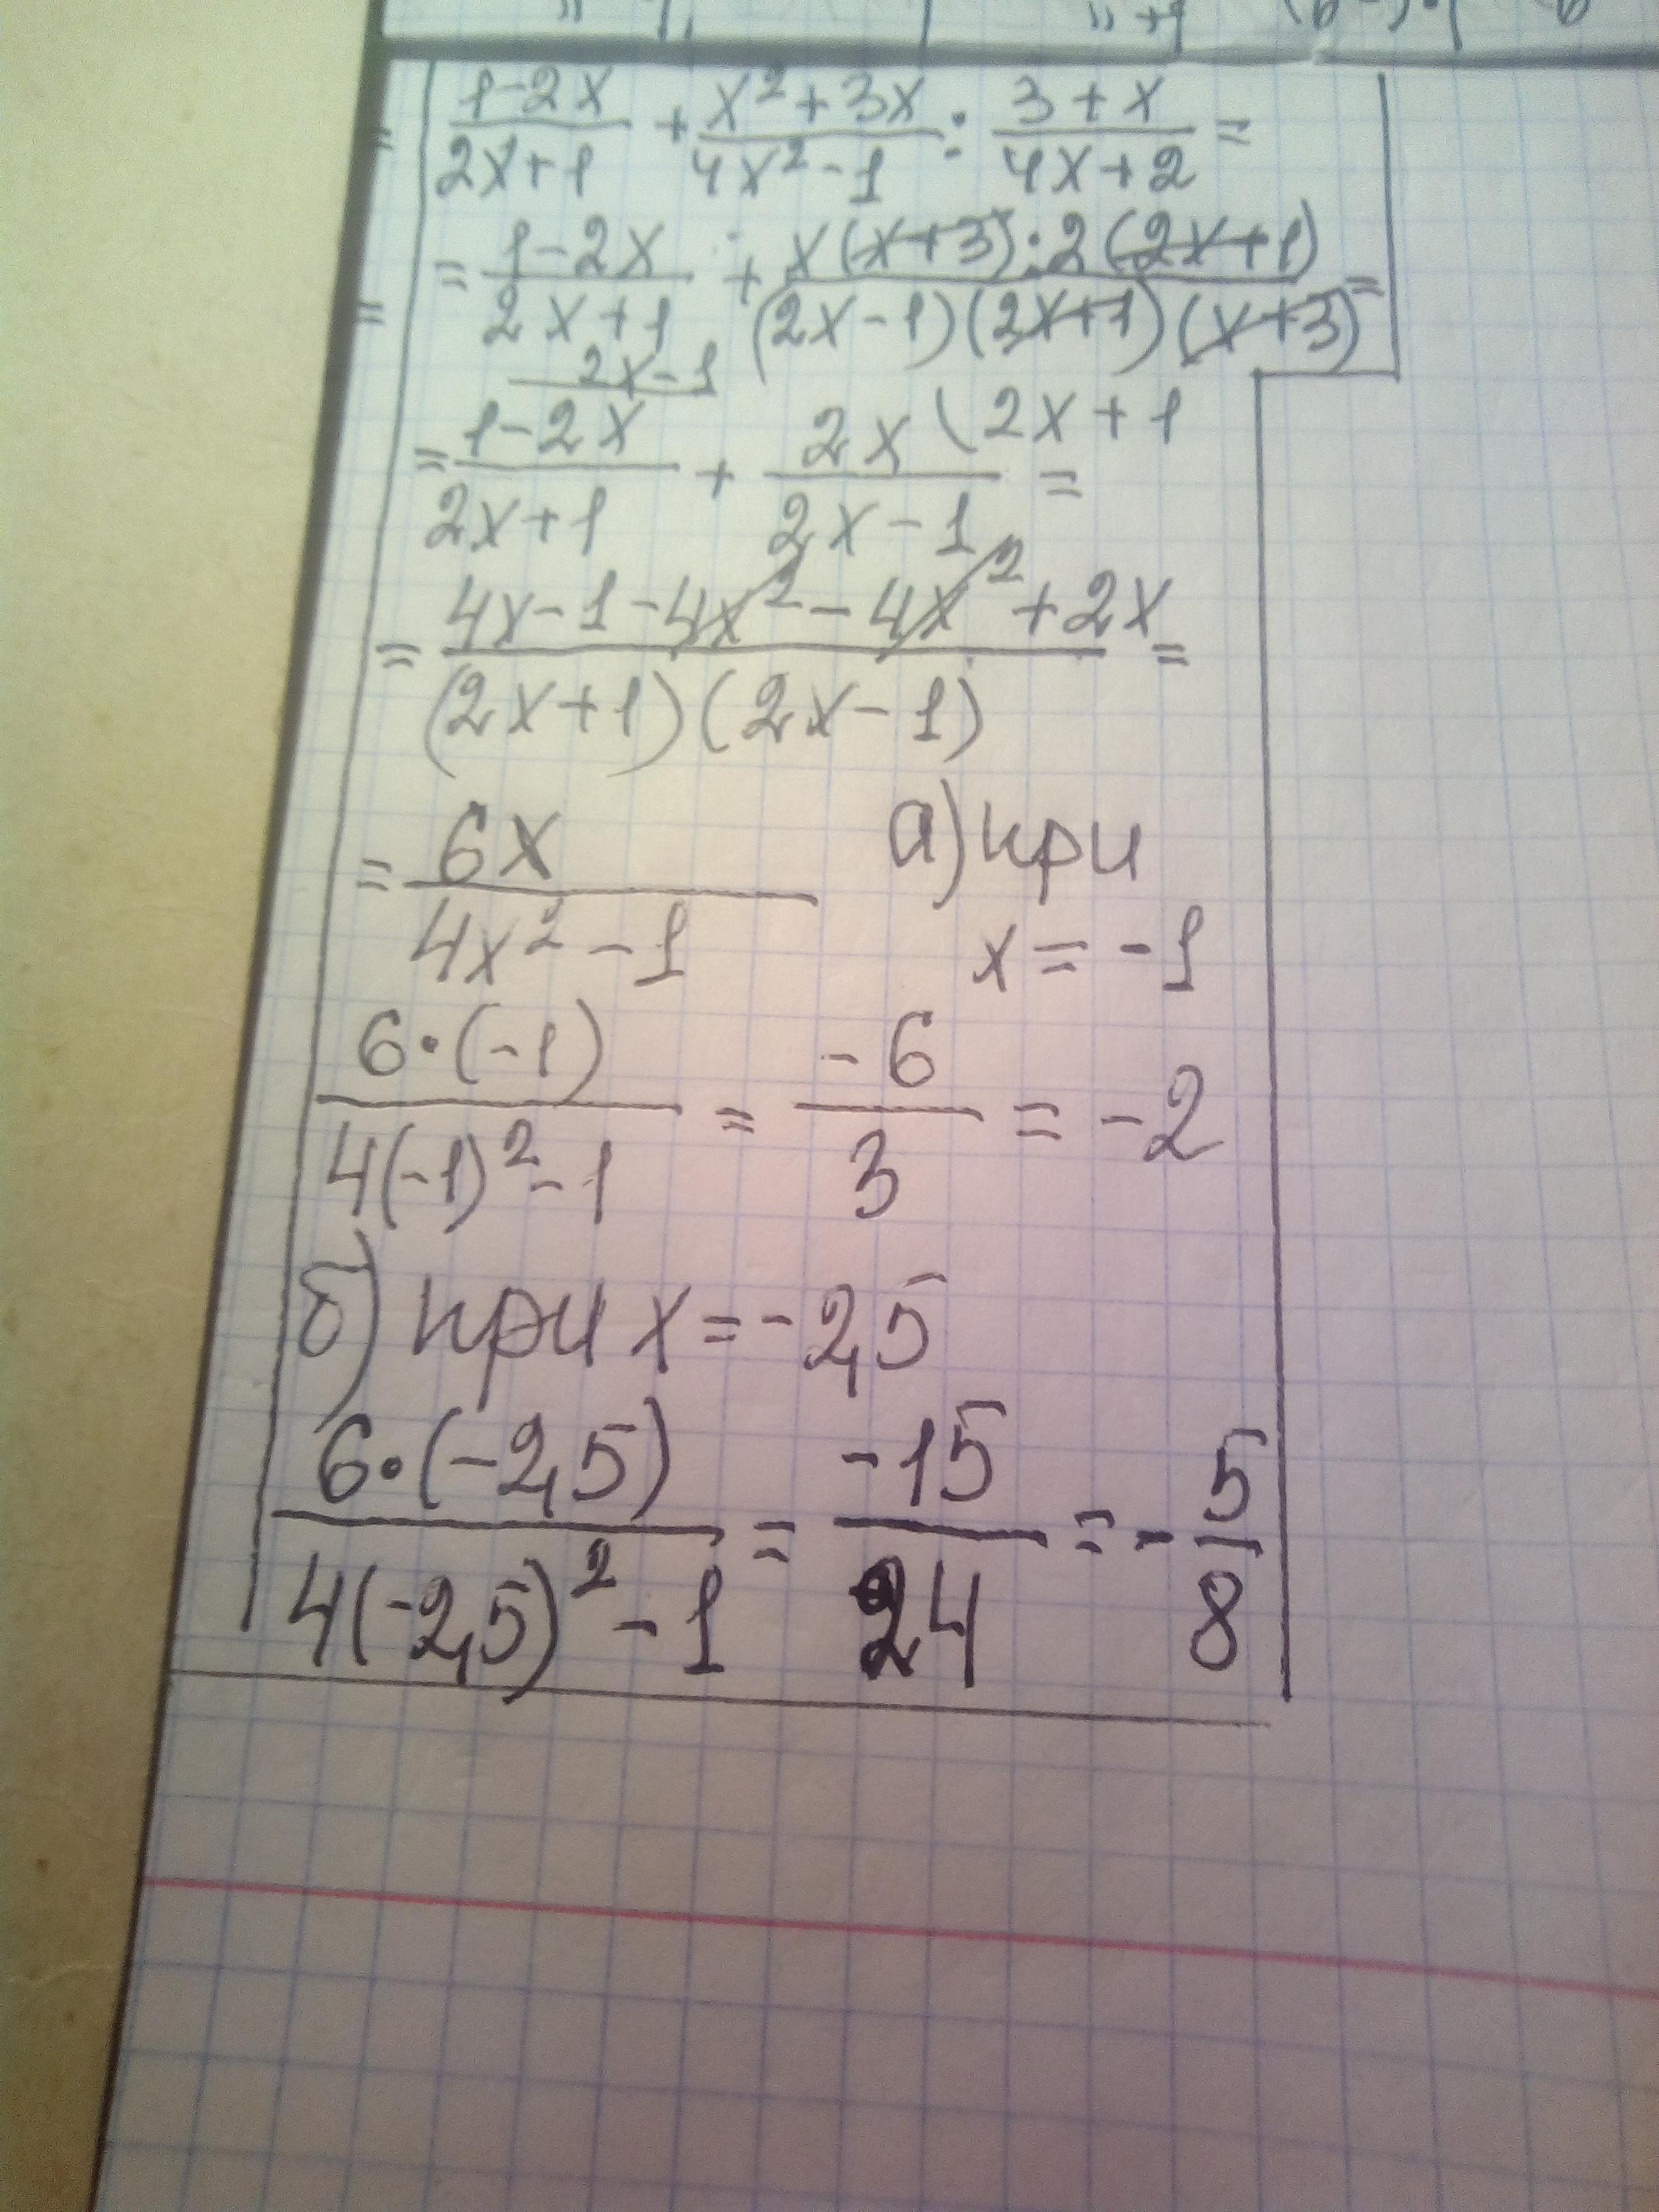 = (1-2x)/(2x+1) + (x²+3x)/(4x²-1) : (3+x)/(4x+2) =
= (1-2x)/(2x+1) + (x(x+3):2(2x+1))/((2x-1)(2x+1)(x+3)) =
2x-1
= (1-2x)/(2x+1) + (2x)/(2x-1) = \2x+1
= (4x-1-4x²-4x²+2x)/((2x+1)(2x-1)) =
= (6x)/(4x²-1) а) при
x = -1
(6·(-1))/(4(-1)²-1) = (-6)/3 = -2
б) при x = -2,5
(6·(-2,5))/(4(-2,5)²-1) = (-15)/24 = -5/8